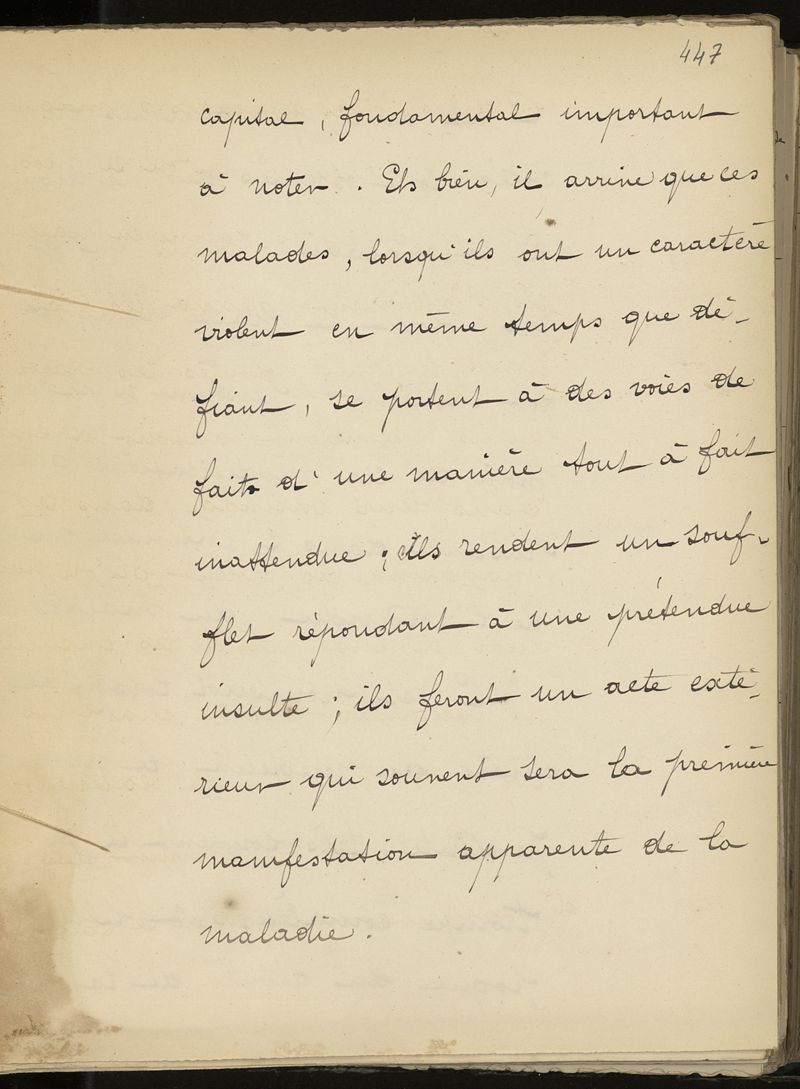 447
capital, fondamental important
à noter. Eh bien, il arrive que ces
malades, lorsqu'ils ont un caractère
violent en même temps que dé-
fiant, se portent à des voies de
faits d'une manière tout à fait
inattendue ; ils rendent un souf-
flet répondant à une prétendue
insulte ; ils feront un acte exté-
rieur qui souvent sera la première
manifestation apparente de la
maladie.